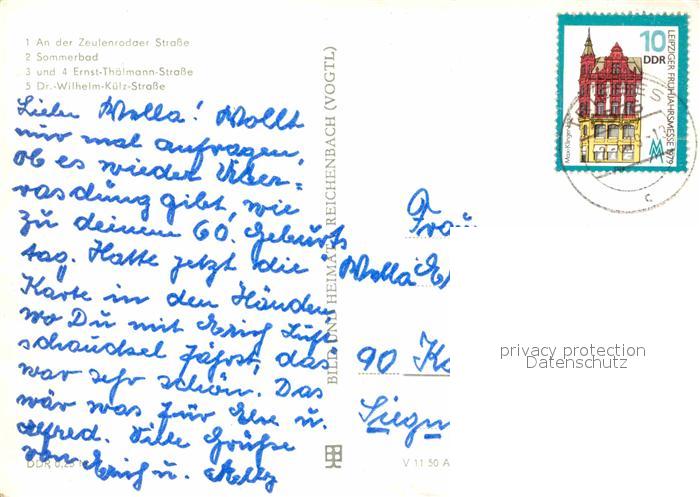 1 An der Zeulenrodaer Straße
2 Sommerbad
3 und 4 Ernst-Thälmann-Straße
5 Dr.-Wilhelm-Külz-Straße
Liebe Wella! Wollt
nur mal anfragen,
ob es wieder Über=
raschung gibt, wie
zu deinem 60. Geburts
tag. Hatte jetzt die
Karte in den Händen
wo Du mit Erich Luft
schaukel fährst, das
war sehr schön. Das
wär was für Else u.
Alfred. Viele Grüße
von Erich u.
DDR 0,25 M
BILD UND HEIMAT REICHENBACH (VOGTL)
V 11 50 A
10
DDR
LEIPZIGER FRÜHJAHRSMESSE 1979
MM
c
Frau
Wella
90 K
Siegm
privacy protection
Datenschutz